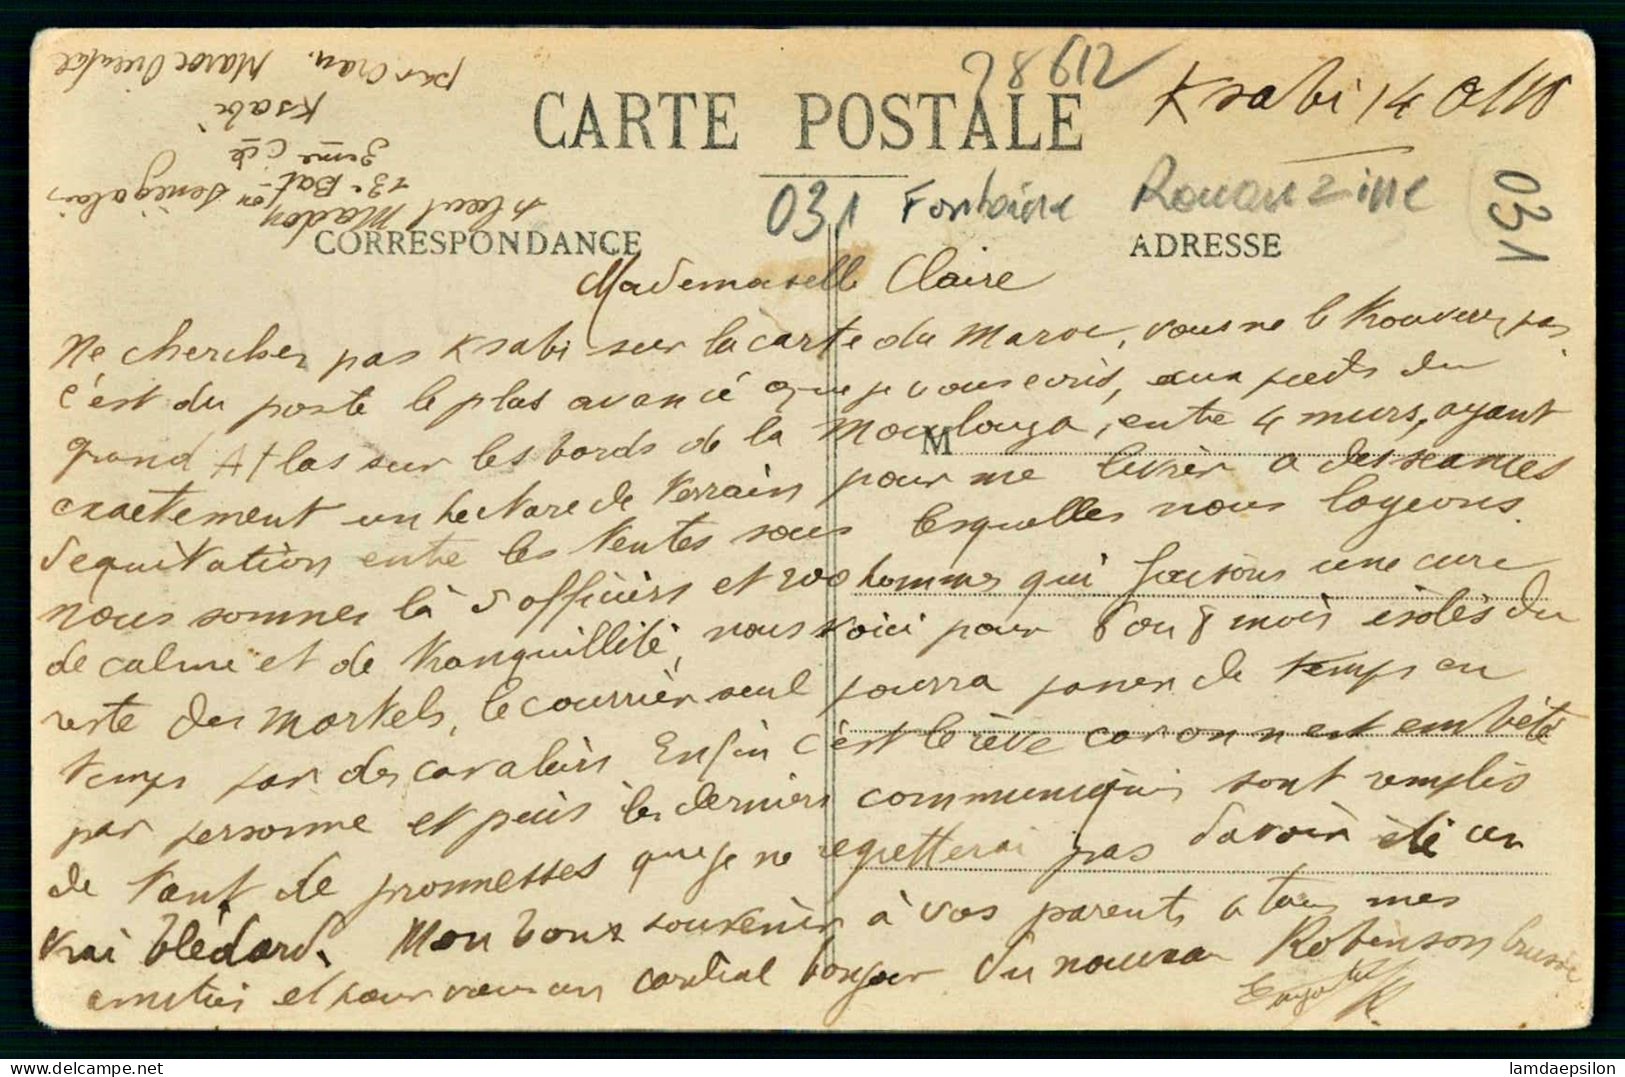 par Oran. Maroc Oriental
Ksabi
3eme Cie
13e Bat on Sénégalais
Madon
28612
Ksabi 14
CARTE POSTALE
031 Fontaine Rouanzine
031
CORRESPONDANCE
ADRESSE
Mademoiselle Claire
Ne cherchez pas Ksabi sur la carte du Maroc, vous ne le trouverez pas
c'est du poste le plus avancé que je vous écris, aux pieds du
grand Atlas sur les bords de la Moulouya, entre 4 murs, ayant
M
exactement un hectare de terrain pour me livrer a des seances
d'equitation entre les tentes sous lesquelles nous logeons.
nous sommes là 5 officiers et 200 hommes qui faisons une cure
de calme et de tranquillité, nous voici pour 6 ou 8 mois isolés du
reste des mortels, le courrier seul pourra passer de temps en
temps par des cavaliers Enfin c'est le rève car on n'est embété
par personne et puis les derniers communiqués sont remplis
de tant de promesses que je ne regretterai pas d'avoir été un
vrai blédard. Mon bons souvenir à vos parents a tous mes
amitiés et pour vous un cordial bonjour du nouveau Robinson Crusoé
lamdaepsilon